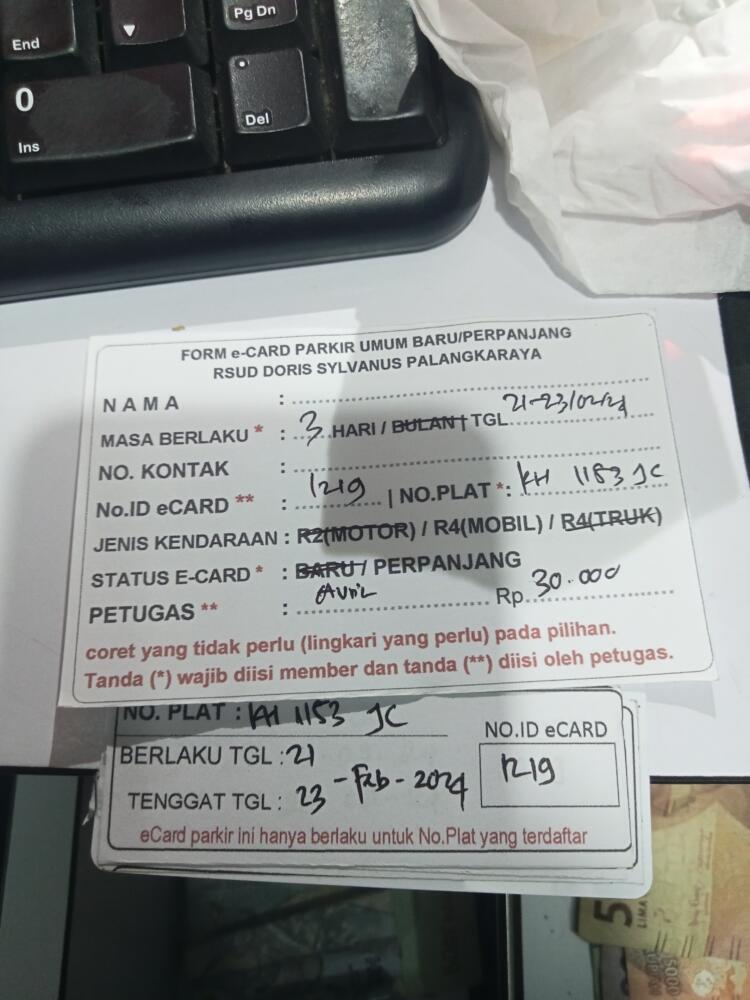 End
Pg Dn
0
Ins
Del
FORM e-CARD PARKIR UMUM BARU/PERPANJANG
RSUD DORIS SYLVANUS PALANGKARAYA
NAMA :
MASA BERLAKU * : 3 HARI / BULAN | TGL 21-23/02/24
NO. KONTAK :
No.ID eCARD ** : 1219 | NO.PLAT *: KH 1153 JC
JENIS KENDARAAN : R2(MOTOR) / R4(MOBIL) / R4(TRUK)
STATUS E-CARD * : BARU / PERPANJANG
PETUGAS ** : Avril Rp. 30.000
coret yang tidak perlu (lingkari yang perlu) pada pilihan.
Tanda (*) wajib diisi member dan tanda (**) diisi oleh petugas.
NO. PLAT : KH 1153 JC
NO.ID eCARD
BERLAKU TGL : 21
1219
TENGGAT TGL : 23 - Feb - 2024
eCard parkir ini hanya berlaku untuk No.Plat yang terdaftar
5
LIMA
5000